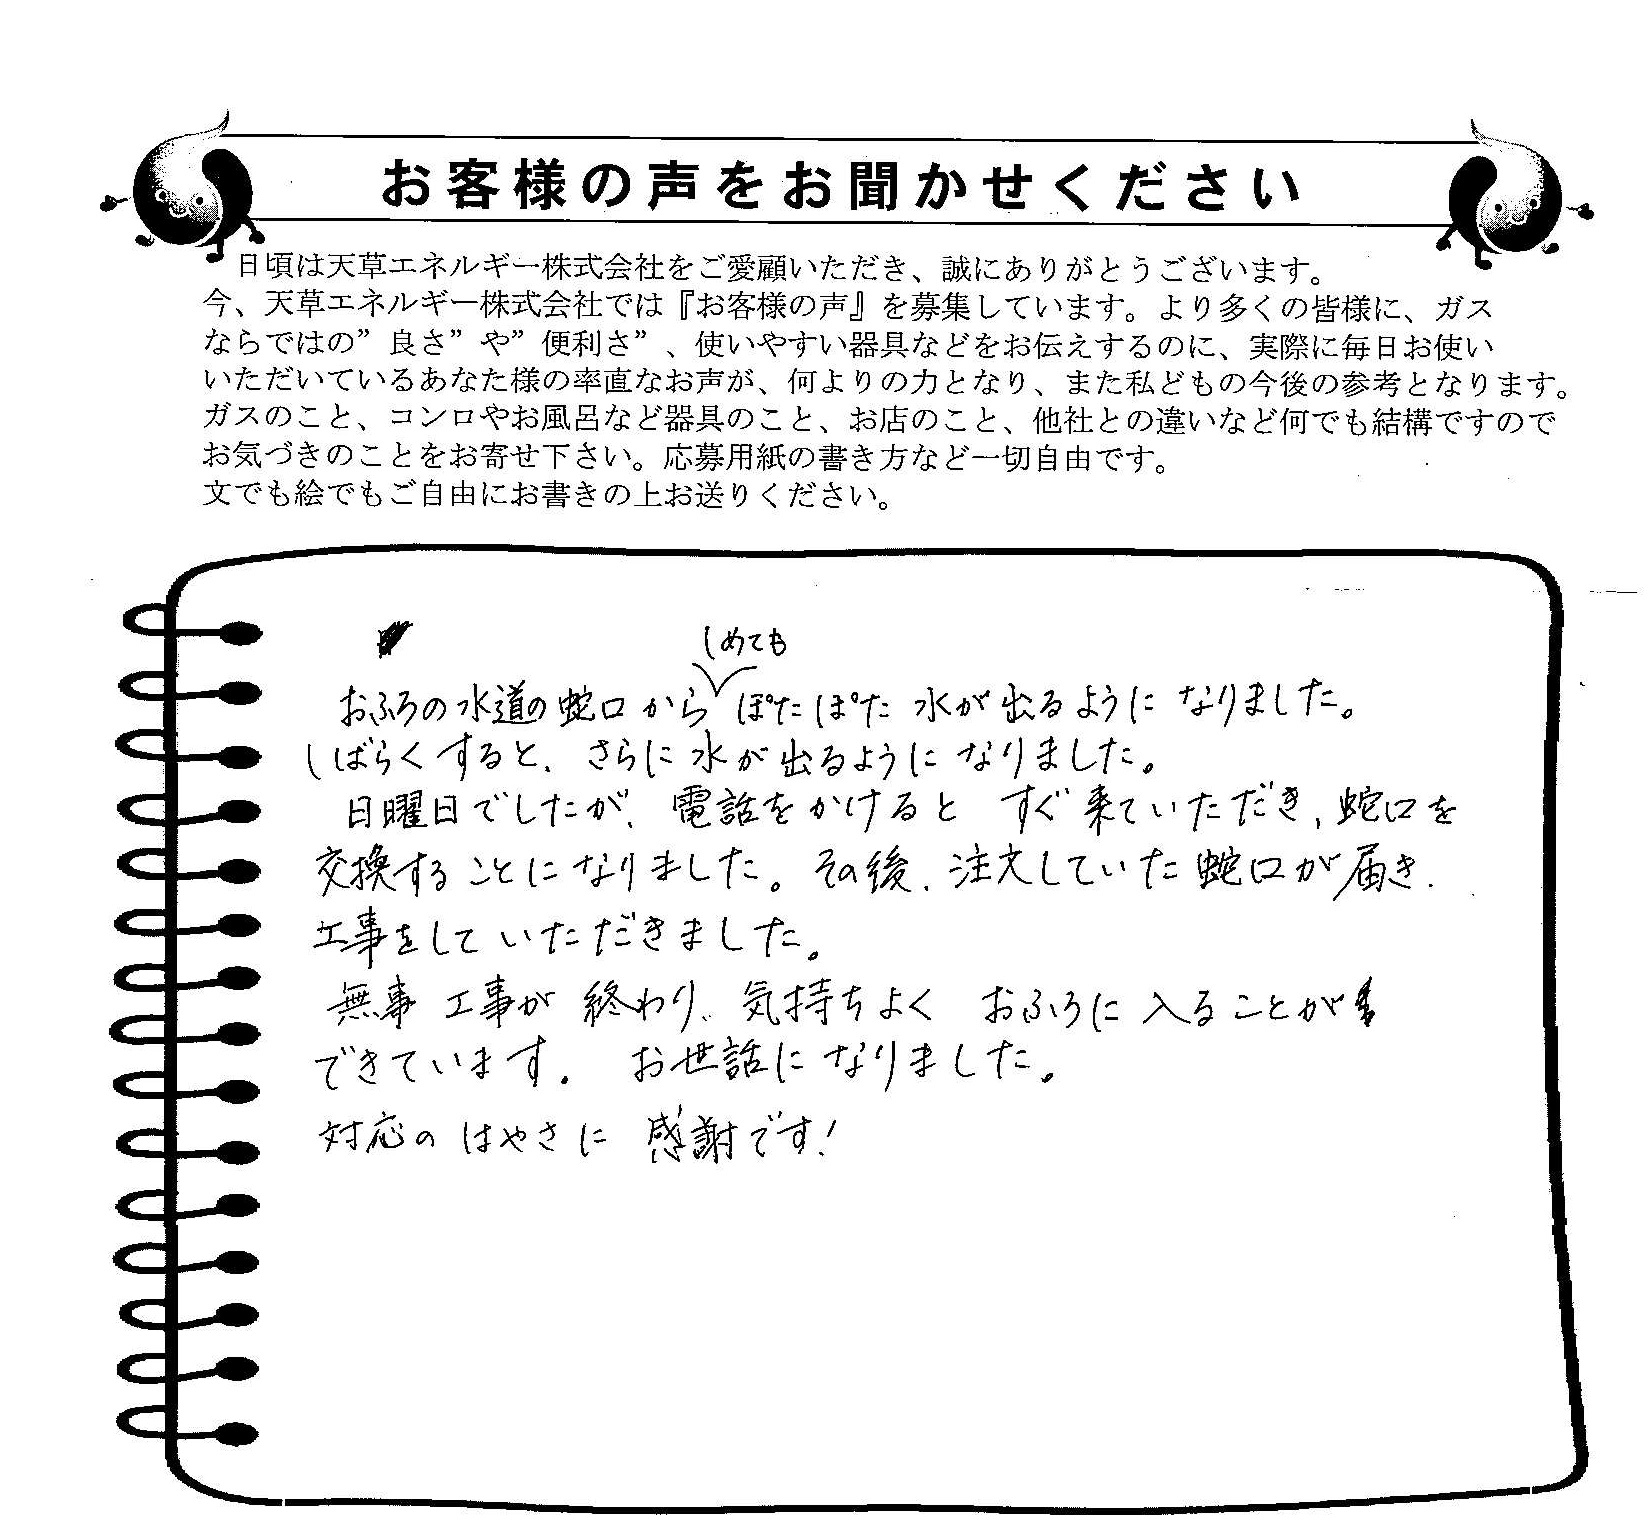 お客様の声をお聞かせください
日頃は天草エネルギー株式会社をご愛顧いただき、誠にありがとうございます。
今、天草エネルギー株式会社では『お客様の声』を募集しています。より多くの皆様に、ガス
ならではの”良さ”や”便利さ”、使いやすい器具などをお伝えするのに、実際に毎日お使い
いただいているあなた様の率直なお声が、何よりの力となり、また私どもの今後の参考となります。
ガスのこと、コンロやお風呂など器具のこと、お店のこと、他社との違いなど何でも結構ですので
お気づきのことをお寄せ下さい。応募用紙の書き方など一切自由です。
文でも絵でもご自由にお書きの上お送りください。
しめても
おふろの水道の蛇口からぽたぽた水が出るようになりました。
しばらくすると、さらに水が出るようになりました。
日曜日でしたが、電話をかけるとすぐ来ていただき、蛇口を
交換することになりました。その後、注文していた蛇口が届き、
工事をしていただきました。
無事工事が終わり、気持ちよくおふろに入ることが
できています。お世話になりました。
対応のはやさに感謝です!